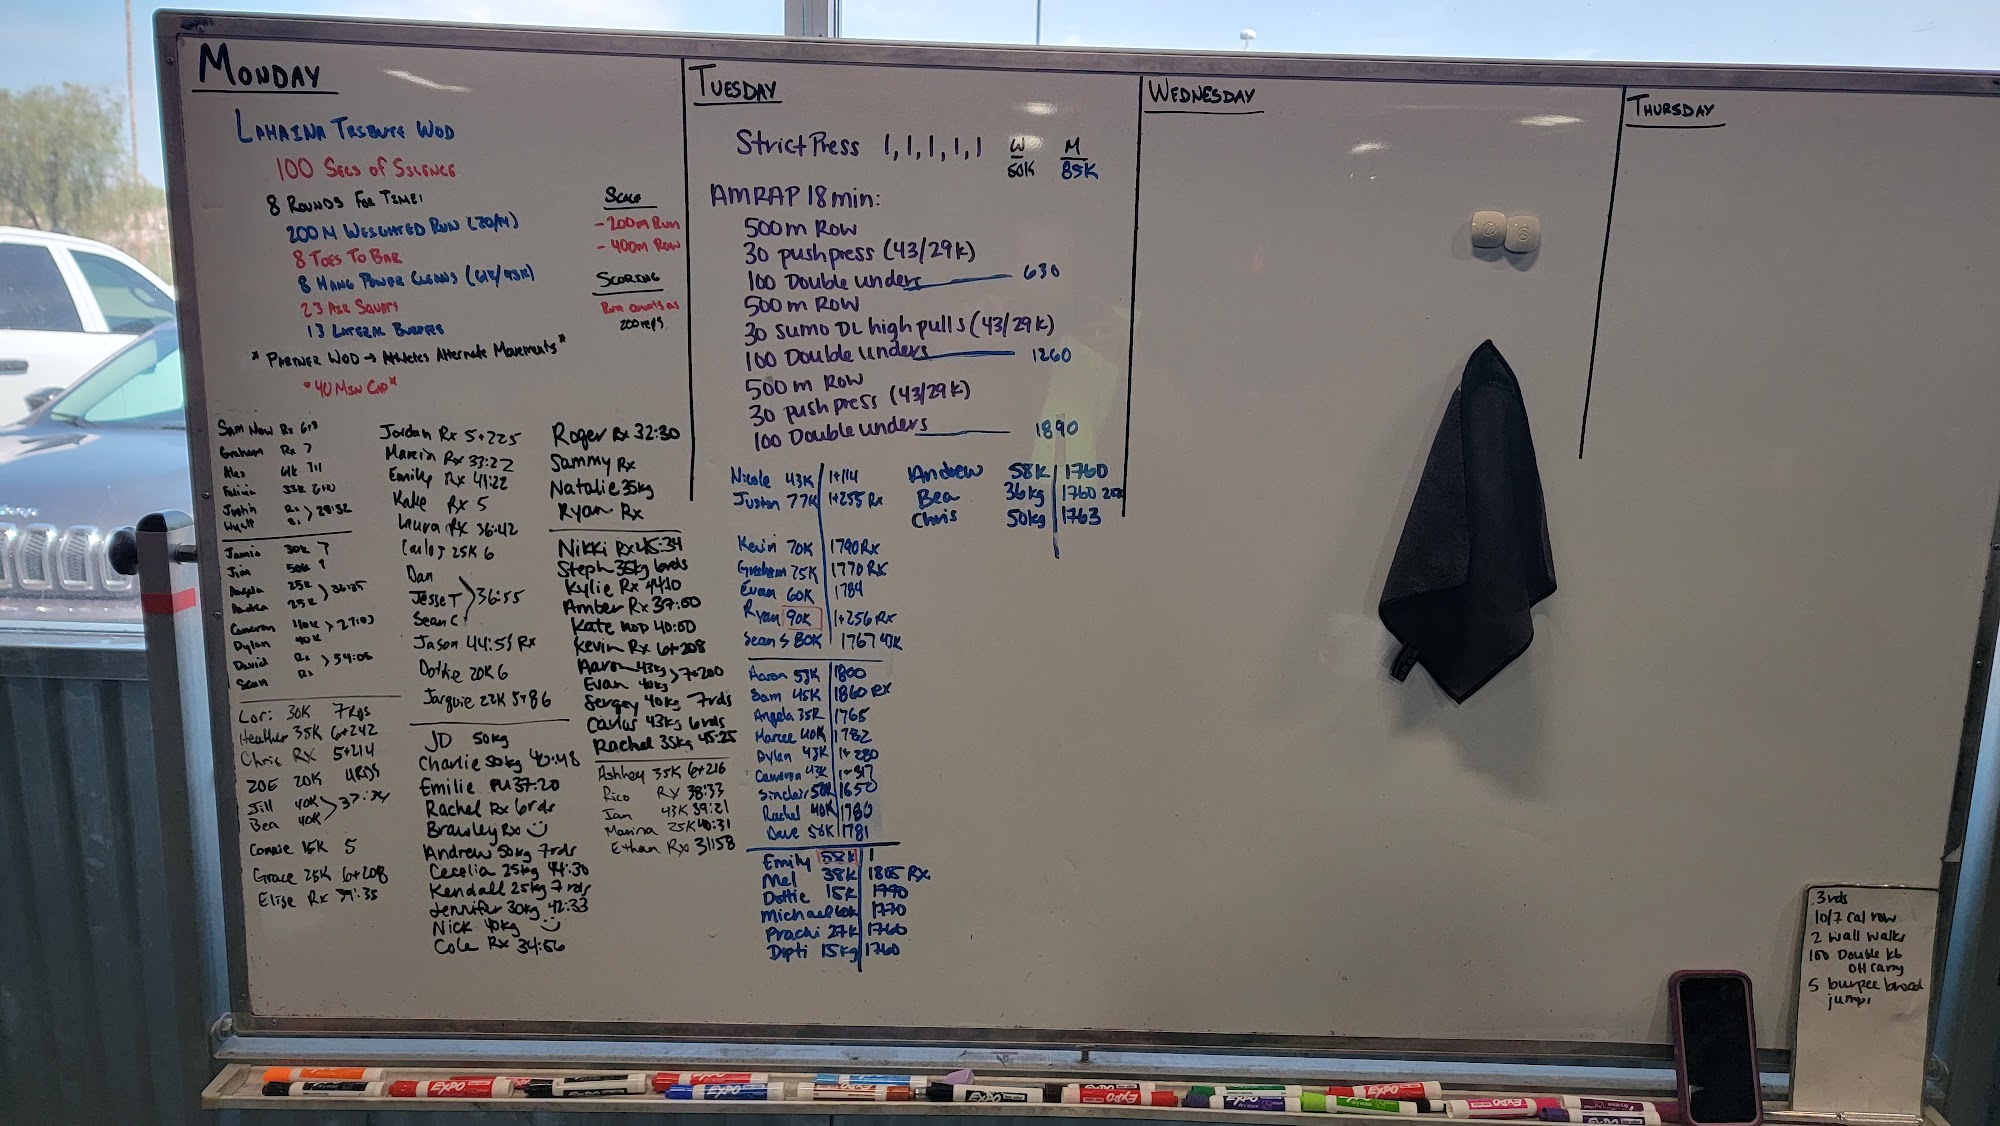 MONDAY
LAHAINA TRIBUTE WOD
100 SECS OF SILENCE
8 ROUNDS FOR TIME:
200 M WEIGHTED RUN
8 TOES TO BAR
8 HANG POWER CLEANS
23 AIR SQUATS
13 LATERAL BURPEES
* PARTNER WOD → Athletes Alternate Movements *
*40 MIN CAP*
SCALE
- 200m RUN
- 400m ROW
SCORING
Run counts as
200 reps
Graham Rx 7
Jamie 30K 7
Jim 50K
Angela 25K
36:35
Andrea 25K
Cameron
27:03
Dylan 40K
David Rx
Sean Rx
Lori 30K 7RDS
Heather 35K 6+242
Chris RX 5+214
ZOE 20K 4RDS
Jill 40K
Bea 40K
Connie 15K 5
Grace 25K 6+208
Elise Rx 39:35
Jordan Rx 5+225
Marcin Rx 33:22
Emily Rx 41:22
Rx 5
Laura RX 36:42
Carlos 25K 6
Dan
Jesse T 36:55
Sean C
Jason 44:55 Rx
Dottie 20K 6
Jacquie 22K 5+86
JD 50kg
Charlie 50kg 40:48
Emilie 37:20
Rachel Rx 6rds
Brawley Rx
Andrew 50kg 7rds
Cecelia 25kg 44:30
Kendall 25kg 7 rds
Jennifer 30kg 42:33
Nick 40kg
Cole Rx 34:56
Roger Rx 32:30
Sammy Rx
Natalie 35kg
Ryan Rx
Nikki Rx 45:34
Steph 35kg 6rds
Kylie Rx 44:10
Amber Rx 37:00
Kate 40:50
Kevin Rx 6+208
Aaron 43kg
7+200
Evan 40kg
Sergey 40kg 7rds
Carlos 43kg 6rds
Rachel 35kg 45:25
Ashley 35K 6+216
Rico RX 38:33
Ian 43K 39:21
Marina 25K 40:31
Ethan Rx 31:58
TUESDAY
Strict Press 1, 1, 1, 1, 1
W M
50K 85K
AMRAP 18 min:
500 m Row
30 push press (43/29k)
100 Double unders 630
500 m Row
30 Sumo DL high pulls (43/29k)
100 Double unders 1260
500 m Row
30 push press (43/29k)
100 Double unders 1890
Nicole 43K 1+114
Justin 77K 1+255 Rx
Kevin 70K 1790 Rx
Graham 75K 1770 RX
Evan 60K 1784
Ryan 90K 1+256 RX
Sean S 80K 1767
Aaron 53K 1800
Sam 45K 1860 RX
Angela 35K 1765
Marcee 40K 1782
Dylan 43K 1+280
Cameron 43K
Sinclair 1650
Rachel 40K 1780
Dave 1781
Emily 58K 1
Mel 38K 1805 RX
Dottie 15K 1790
Michael 60K 1770
Prachi 27K 1760
Dipti 15kg 1760
Andrew 58K 1760
Bea 36kg 1760
Chris 50kg 1763
WEDNESDAY
THURSDAY
3rds
10/7 cal row
2 wall walks
100 Double kb
OH carry
5 burpee broad
jumps
EXPO
EXPO
EXPO
EXPO
EXPO
EXPO
EXPO
EXPO
EXPO